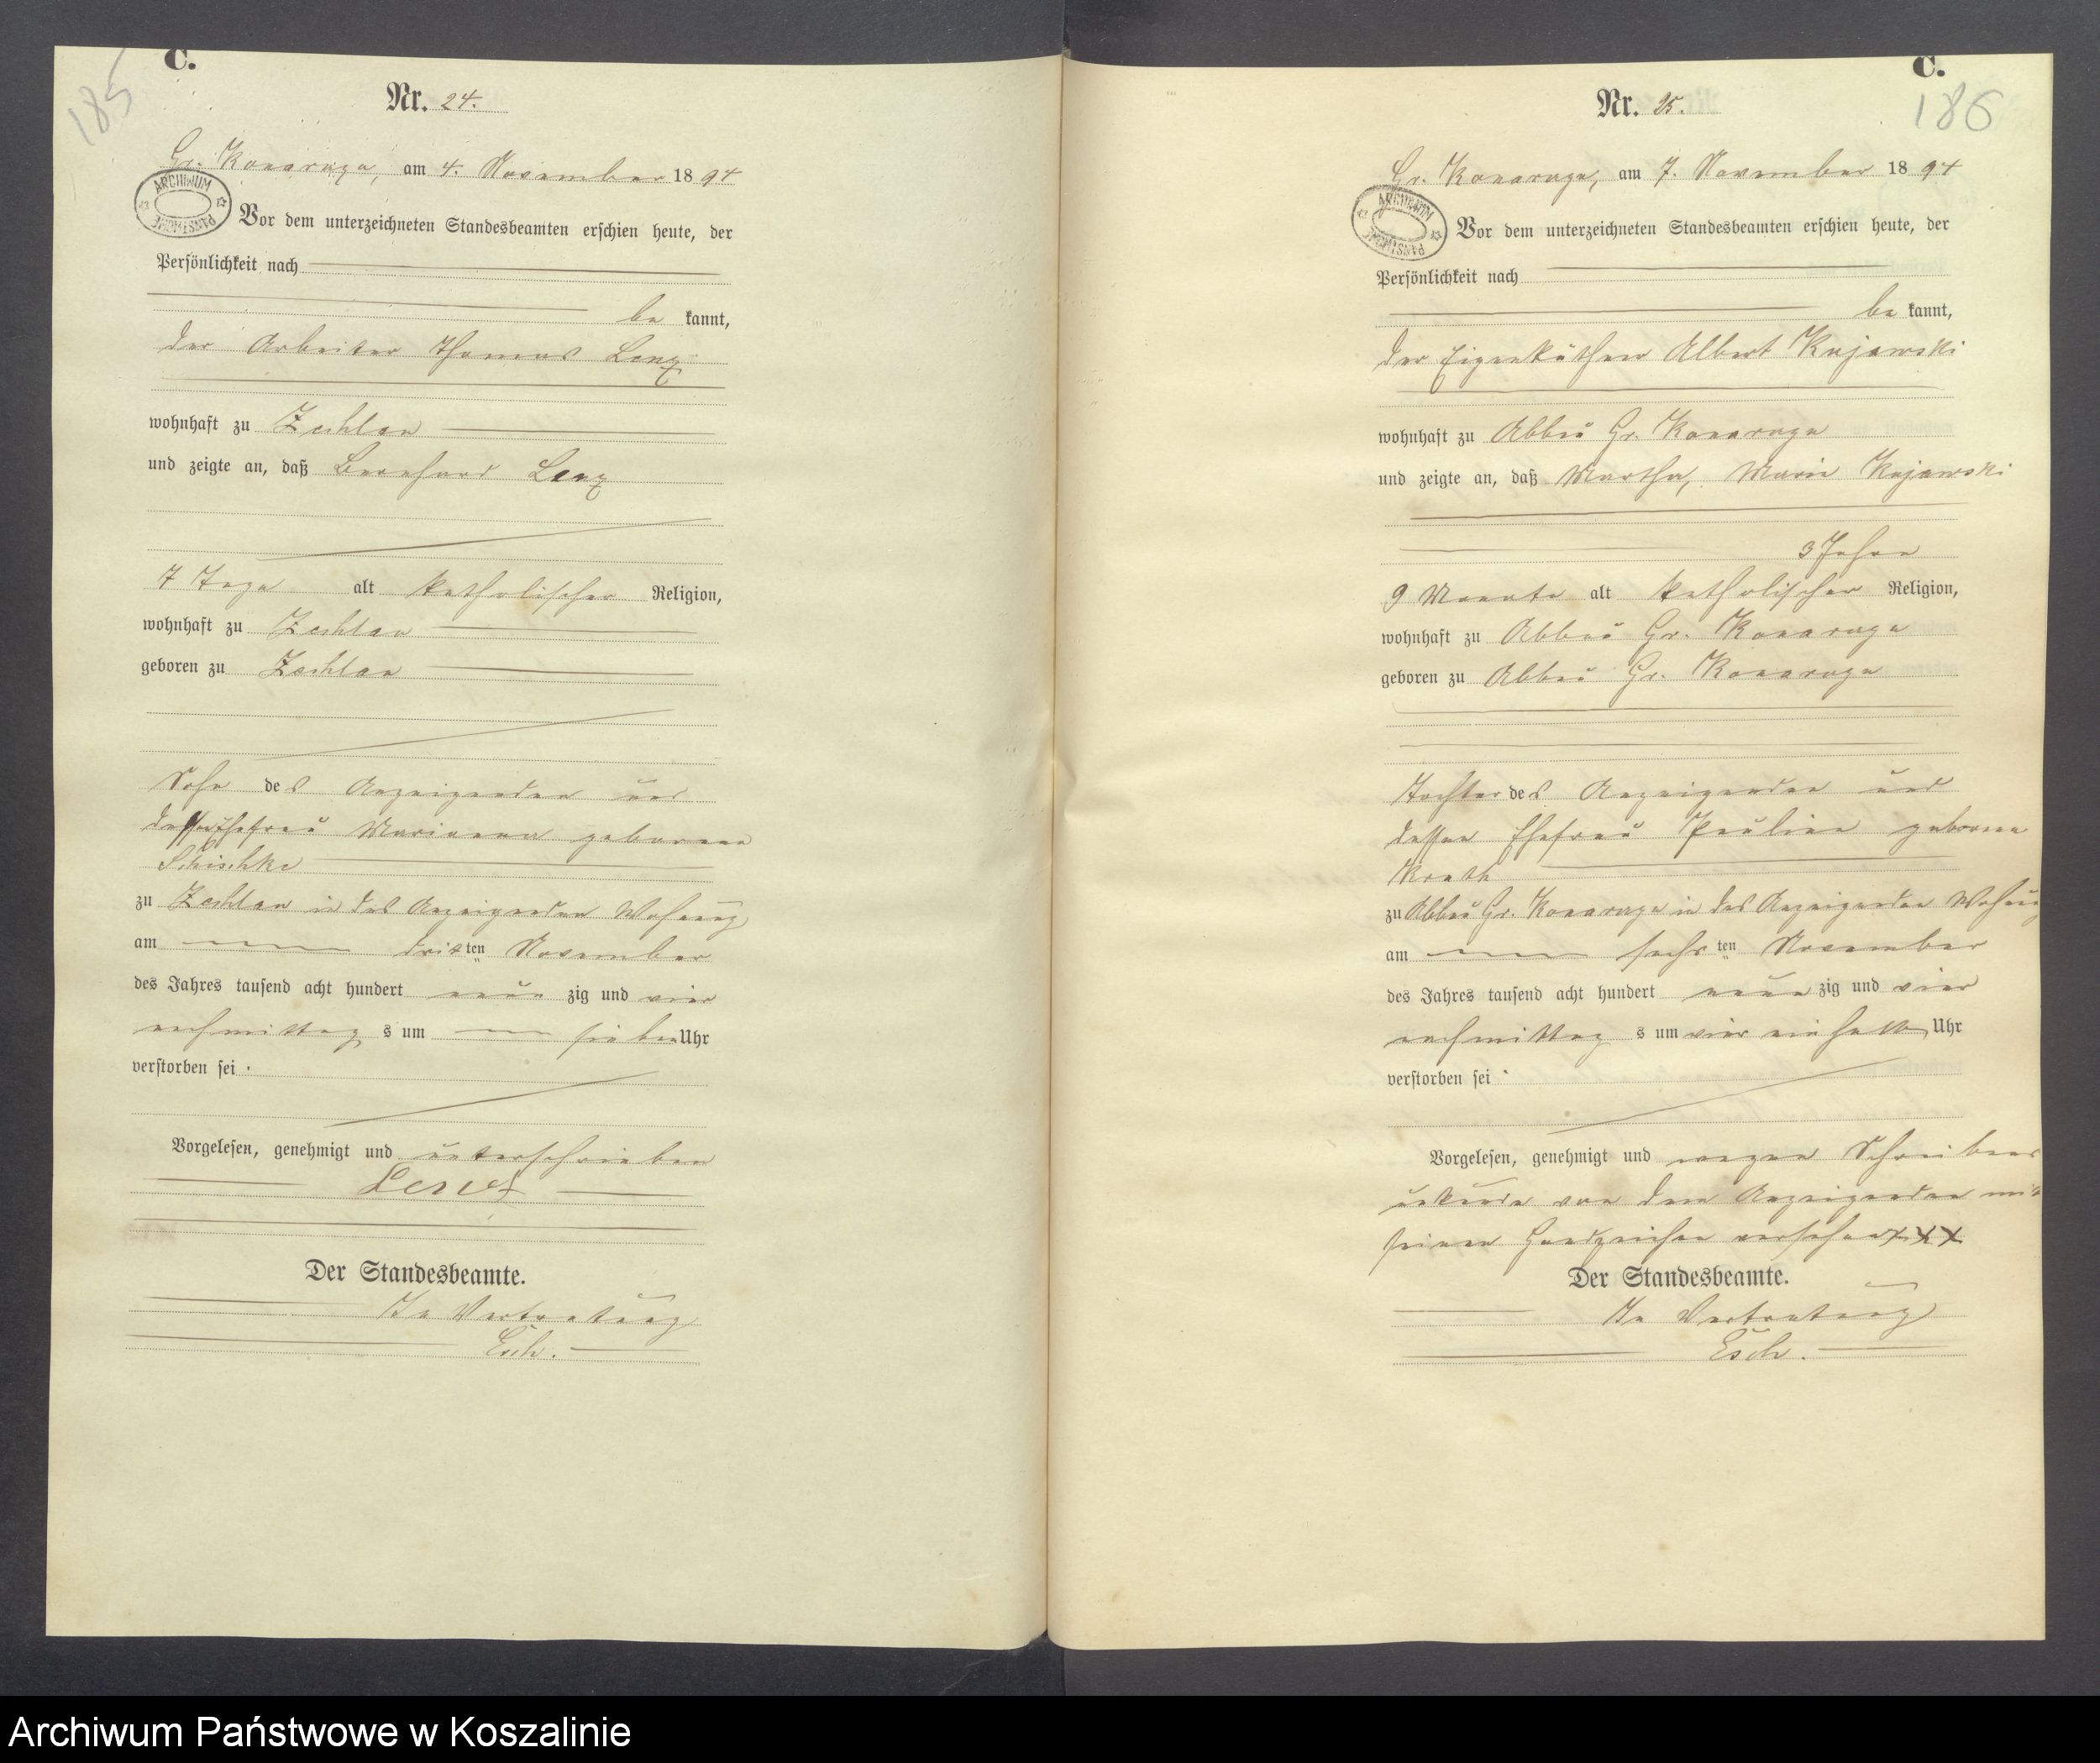 C.
185
Nr. 24.
Gr. Konarzyn, am 4. November 1894
ARCHIWUM PAŃSTWOWE
Vor dem unterzeichneten Standesbeamten erschien heute, der
Persönlichkeit nach
be kannt,
der Arbeiter Thomas Lenz
wohnhaft zu Zechlau
und zeigte an, daß Bernhard Lenz
7 Tage alt katholischer Religion,
wohnhaft zu Zechlau
geboren zu Zechlau
Sohn des Anzeigenden und
dessen Ehefrau Marianna geborene
Schischke
zu Zechlau in des Anzeigenden Wohnung
am dritten November
des Jahres tausend acht hundert neun zig und vier
nachmittag s um sieben Uhr
verstorben sei.
Vorgelesen, genehmigt und unterschrieben
Der Standesbeamte.
In Vertretung
Esch.
C.
186
Nr. 25.
Gr. Konarzyn, am 7. November 1894
ARCHIWUM PAŃSTWOWE
Vor dem unterzeichneten Standesbeamten erschien heute, der
Persönlichkeit nach
be kannt,
der Eigenkäthner Albert Kujawski
wohnhaft zu Abbau Gr. Konarzyn
und zeigte an, daß Martha, Marie Kujawski
3 Jahre
9 Monate alt katholischer Religion,
wohnhaft zu Abbau Gr. Konarzyn
geboren zu Abbau Gr. Konarzyn
Tochter des Anzeigenden und
dessen Ehefrau Pauline geborene
zu Abbau Gr. Konarzyn in des Anzeigenden Wohnung
am sechsten November
des Jahres tausend acht hundert neun zig und vier
nachmittag s um vier ein halb Uhr
verstorben sei.
Vorgelesen, genehmigt und wegen Schreibens
unkunde von dem Anzeigenden mit
seinen Handzeichen versehen xxx
Der Standesbeamte.
In Vertretung
Esch.
Archiwum Państwowe w Koszalinie